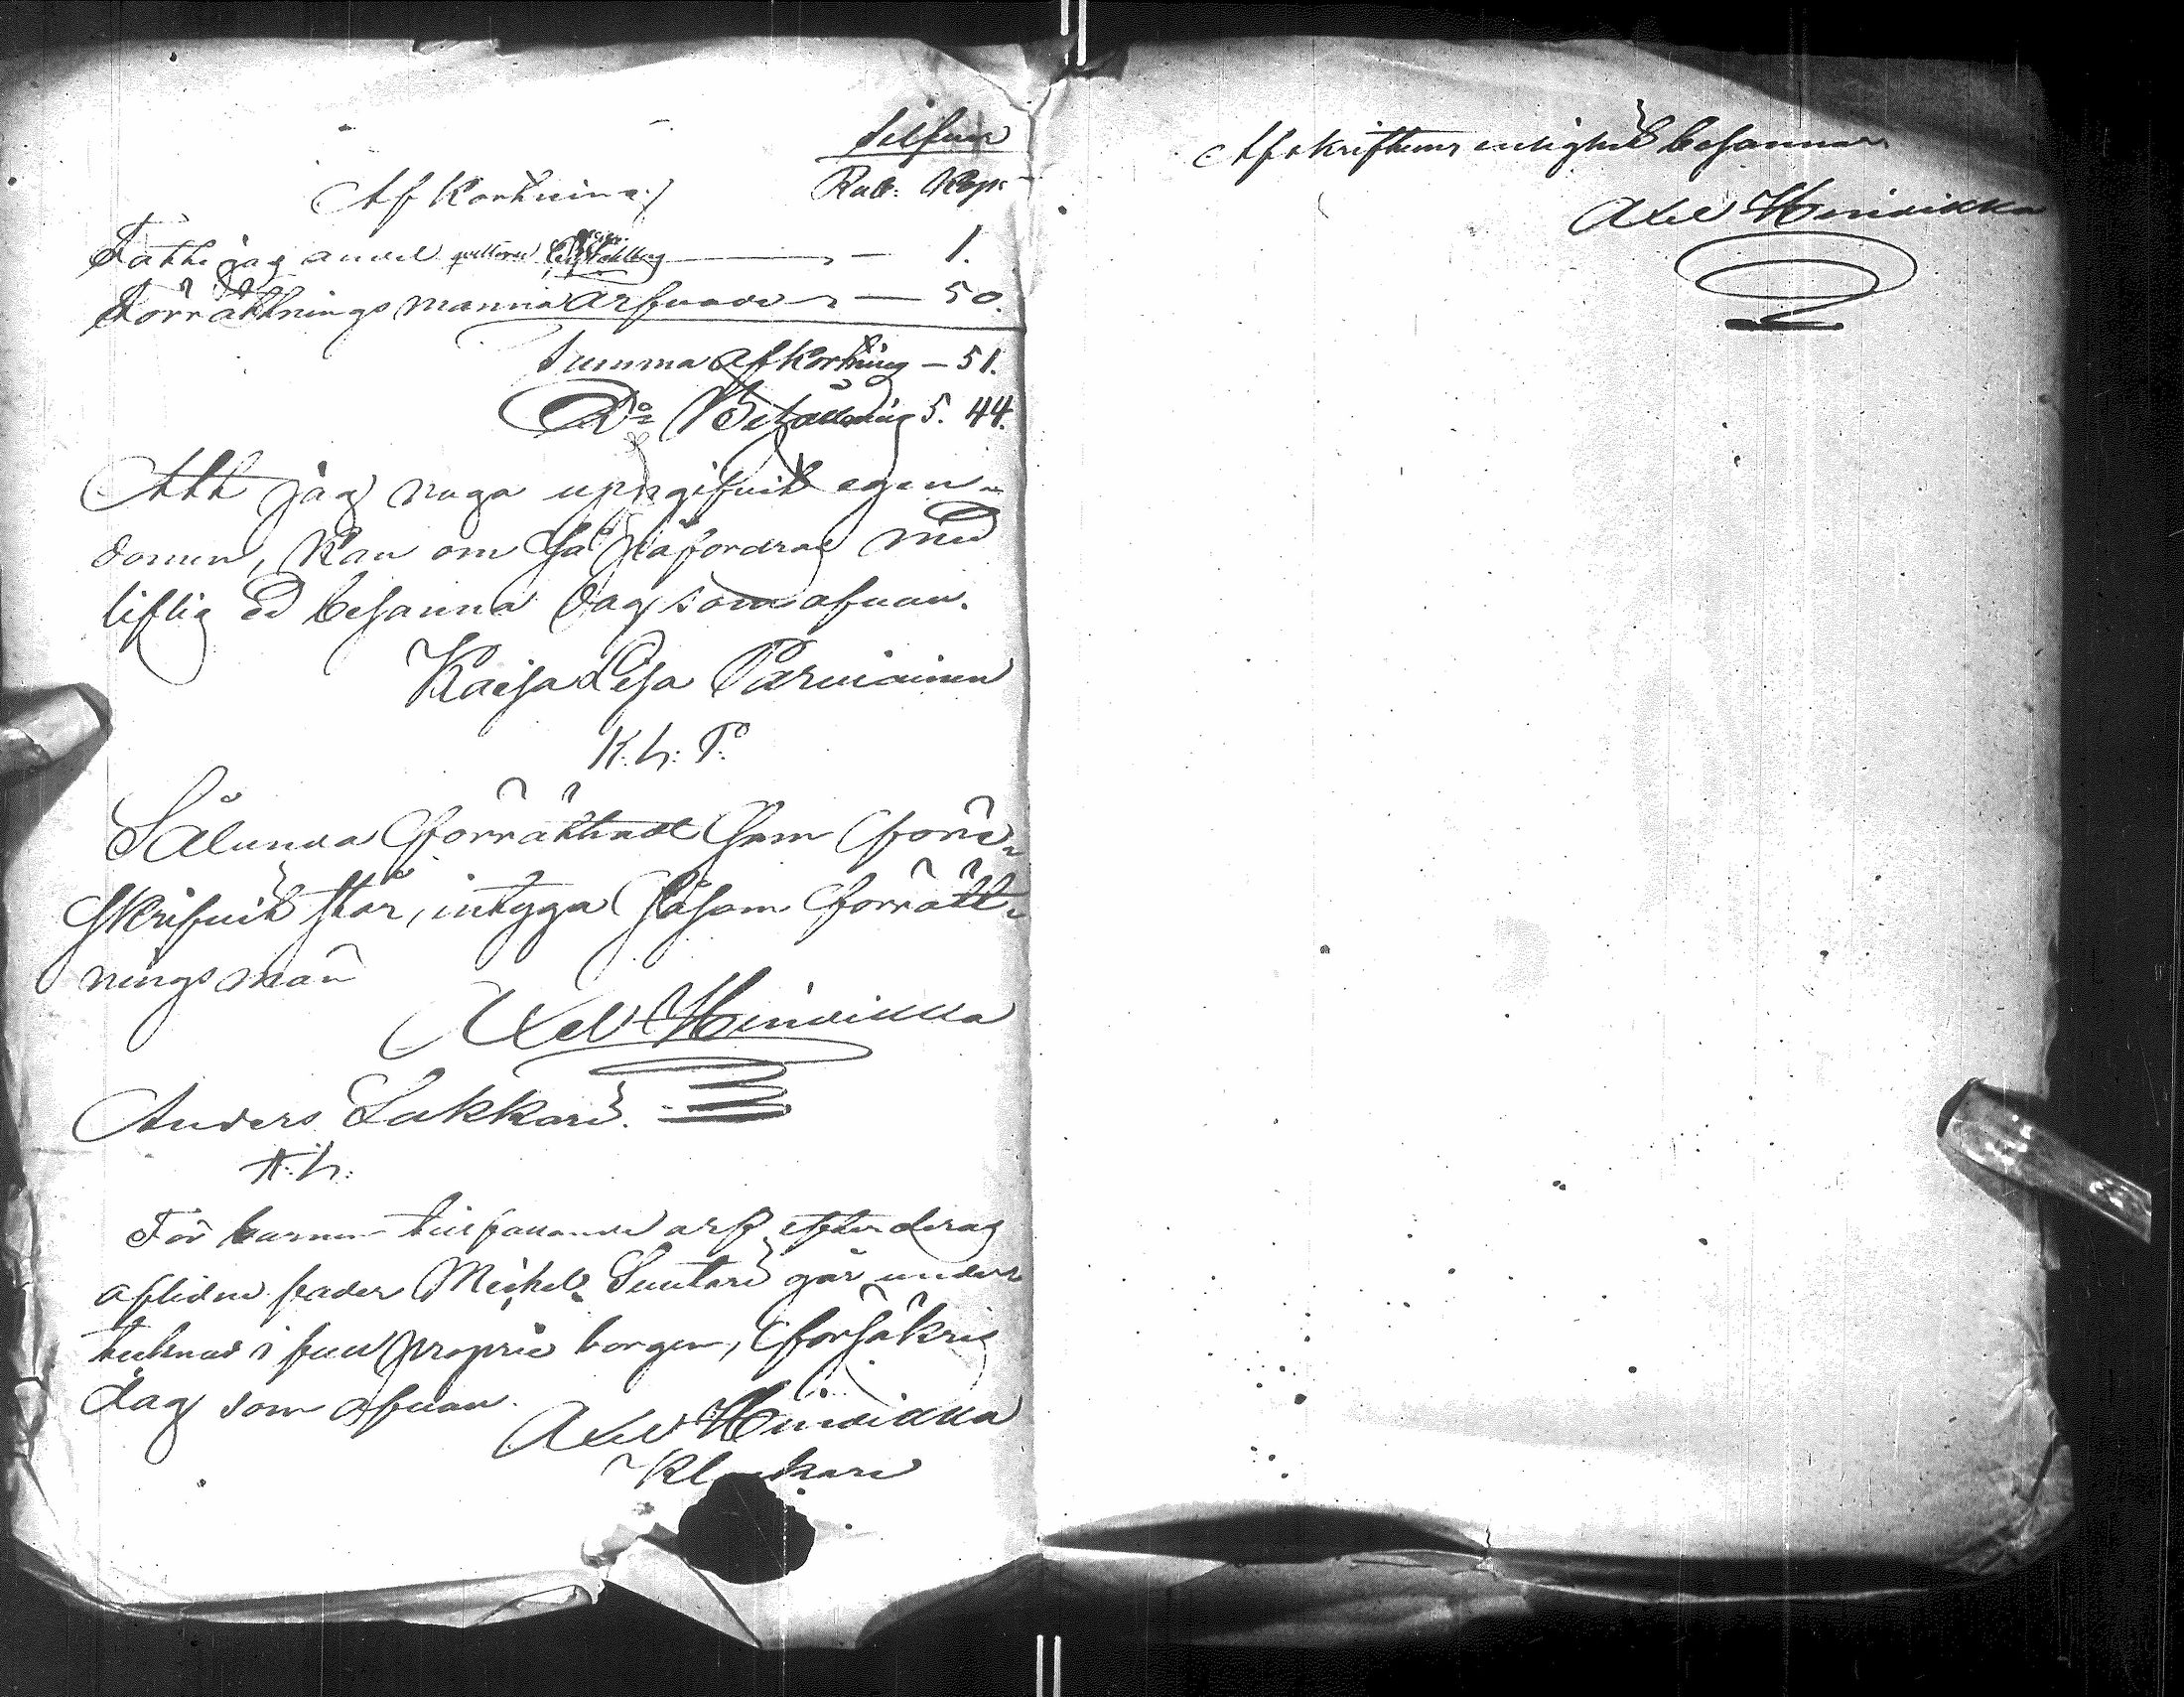 Silfver
Afkortning Rub: Kop:
Fattigas andel qvitteras — 1.
Förrättnings manna arfvode — 50.
Summa afkortning — 51.
D:o Behållning 5. 44.
Att jag noga uppgifvit egen-
domen, kan om så påfordras med
liflig ed besanna dag som ofvan.
Kaisa Lisa Parviainen
K. L: P.
Sålunda förrättadt som före-
skrifvit står, intyga såsom förrätt-
ningsmän
Axel Hindikka
Anders Lukkari.
A: L:
För barnen tillfallande arf efter deras
aflidne fader Michel Suutari går under
tecknad i full proprie borgen, försäkras
dag som ofvan.
Axel Hindikka
Klockare
Afskriftens riktighet besannar
Axel Hindikka